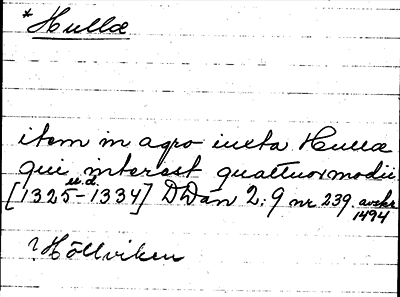 *Hullæ
item in agro iuxta Hullæ
qui interest quattuor modii
u.d.
[1325-1334] DDan 2:9 nr 239. avskr
1494
? Höllviken